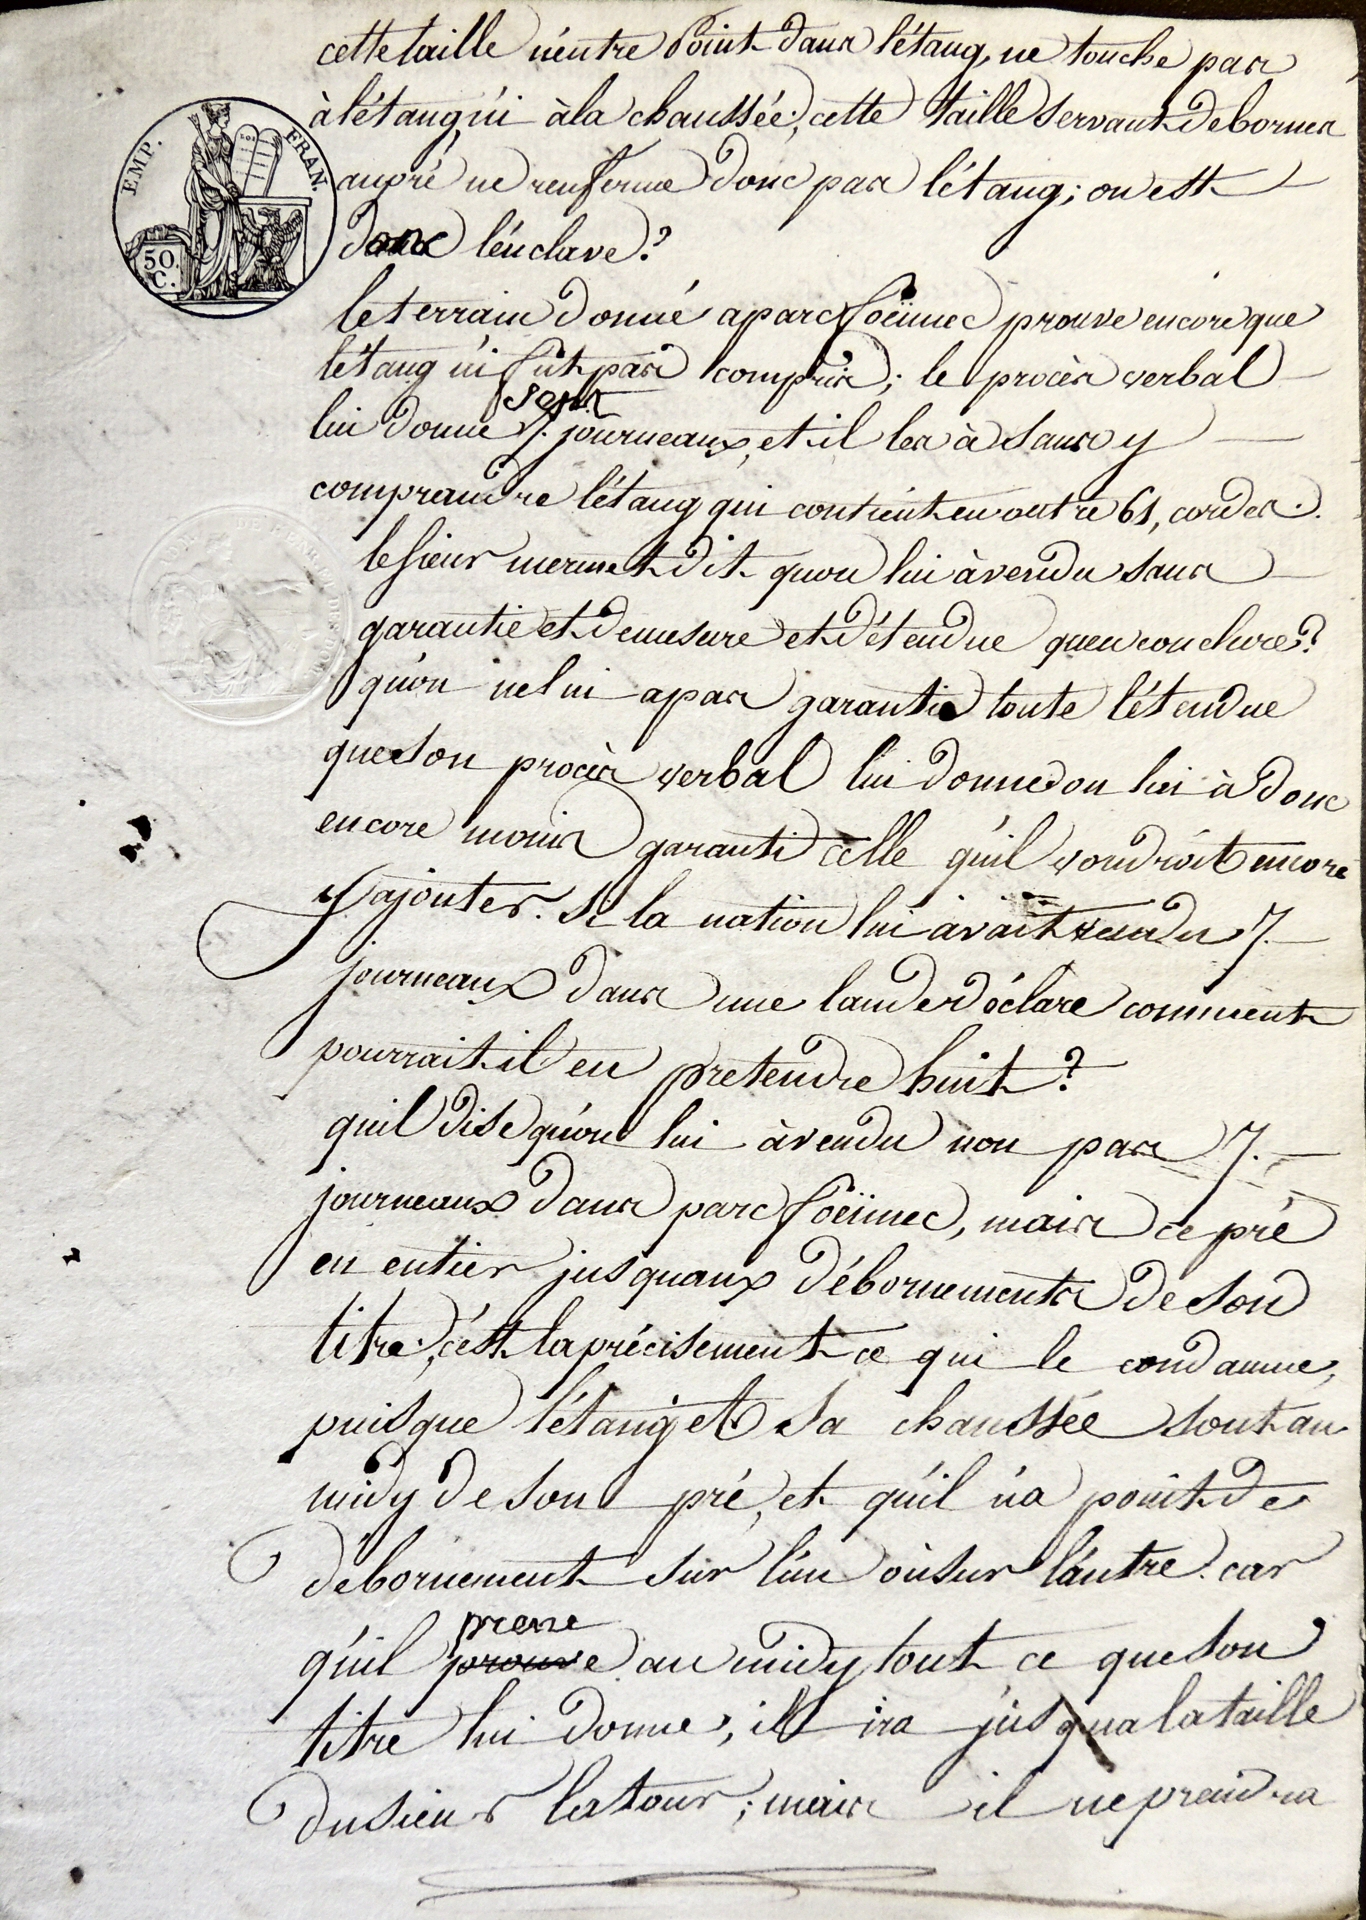 cette taille n'entre Point dans l'étang, ne touche pas
à l'étang, ni à la chaussée; cette taille servant de bornes
EMP. FRAN.
LOI
50 C.
au pré ne renferme donc pas l'étang; ou est
donc l'enclave?
le terrain donné a parc foëunec prouve encore que
l'étang ni fut pas compris; le procès verbal
sept
lui donne 7. journeaux, et il les à sans y
comprendre l'étang qui contient en outre 61, cordes.
le sieur mermet dit quon lui à vendu sans
garantie et de mesure et d'étendue quen conclure?
qu'on ne lui a pas garantie toute l'étendue
que son procès verbal lui donne on lui à donc
encore moins garanti celle qu'il voudroit encore
y ajouter. Si la nation lui avait vendu 7.
journeaux dans une lande déclare comment
pourrait-il en pretendre huit?
quil dise qu'on lui à vendu non pas 7.
journeaux dans parc foëunec, mais ce pré
en entier jusquaux débornements de son
titre; c'est la précisement ce qui le condamne,
puisque l'étang et sa chaussée sont au
midy de son pré, et qu'il n'a point de
débornement sur l'un où sur l'autre. car
prene
qu'il prouve au midy tout ce que son
titre lui donne, il ira jusqua la taille
du sieur latour; mais il ne prendra